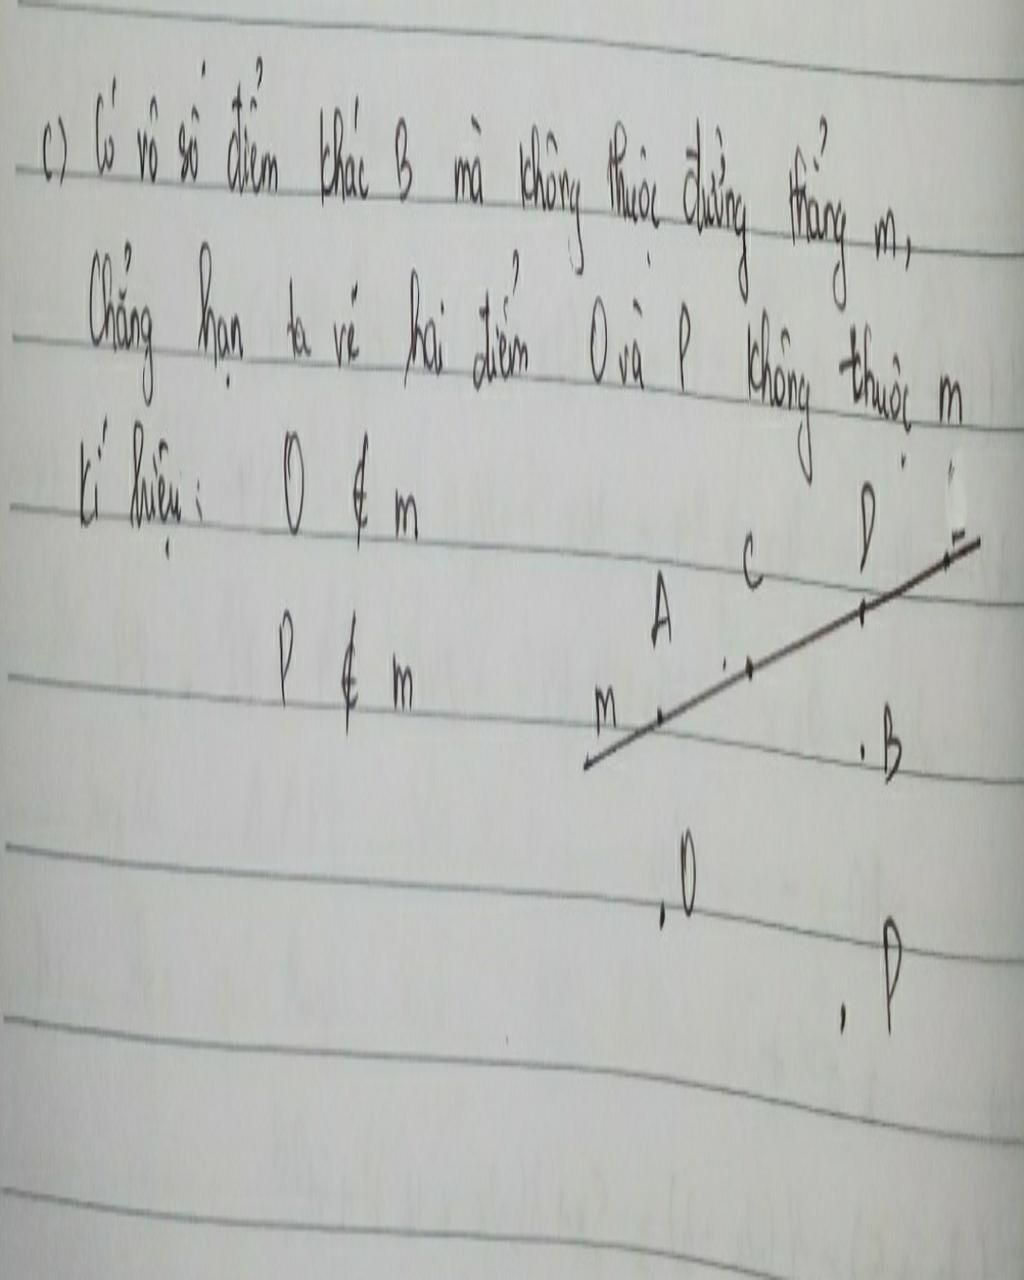 c) Có vô số điểm khác B mà không thuộc đường thẳng m,
Chẳng hạn ta vẽ hai điểm O và P không thuộc m
Kí hiệu: O ∉ m
P ∉ m
D
C
A
m
B
O
P